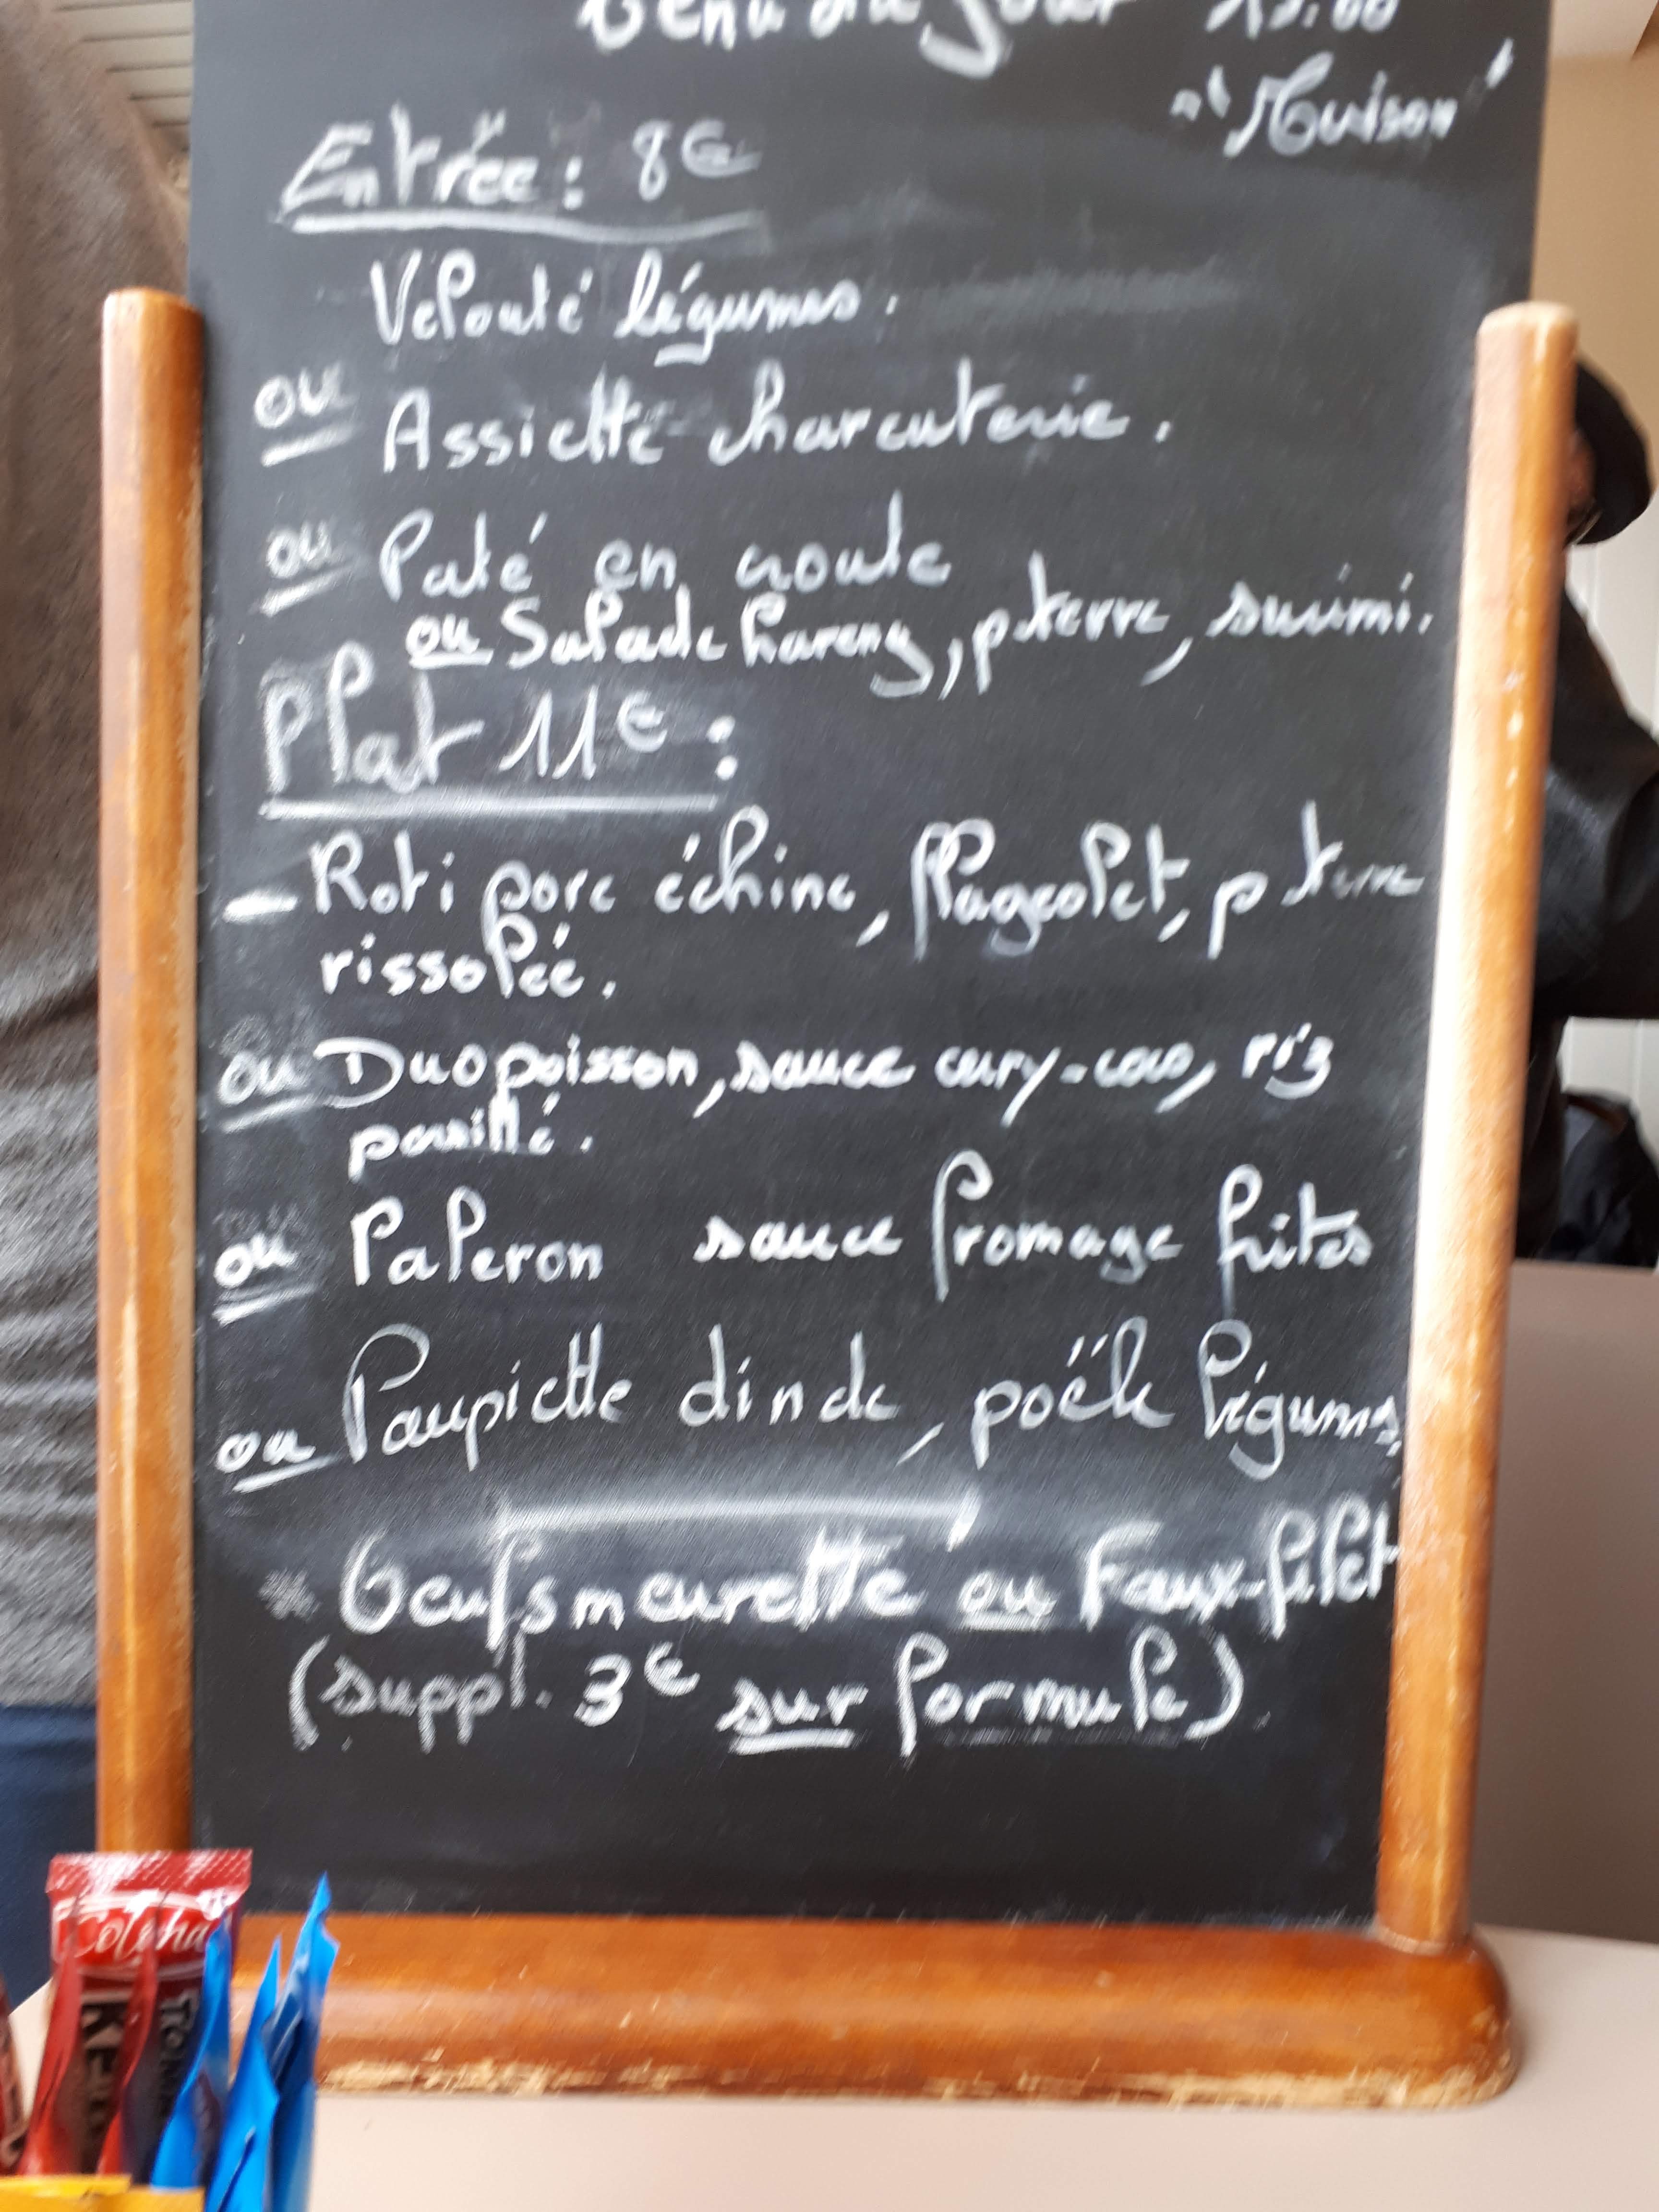 Menu du jour
"Maison"
Entrée: 8€
Velouté légumes.
ou Assiette charcuterie.
ou Paté en croute
ou Salade hareng, p terre, surimi.
Plat 11€:
- Roti porc échine, flageolet, p terre
rissolée.
ou Duo poisson, sauce cury-coco, riz
ou Paleron sauce fromage frites
ou Paupiette dinde, poële légumes,
* Oeufs meurette ou Faux-filet
(suppl. 3€ sur formule)
Colona
KE
TOMA